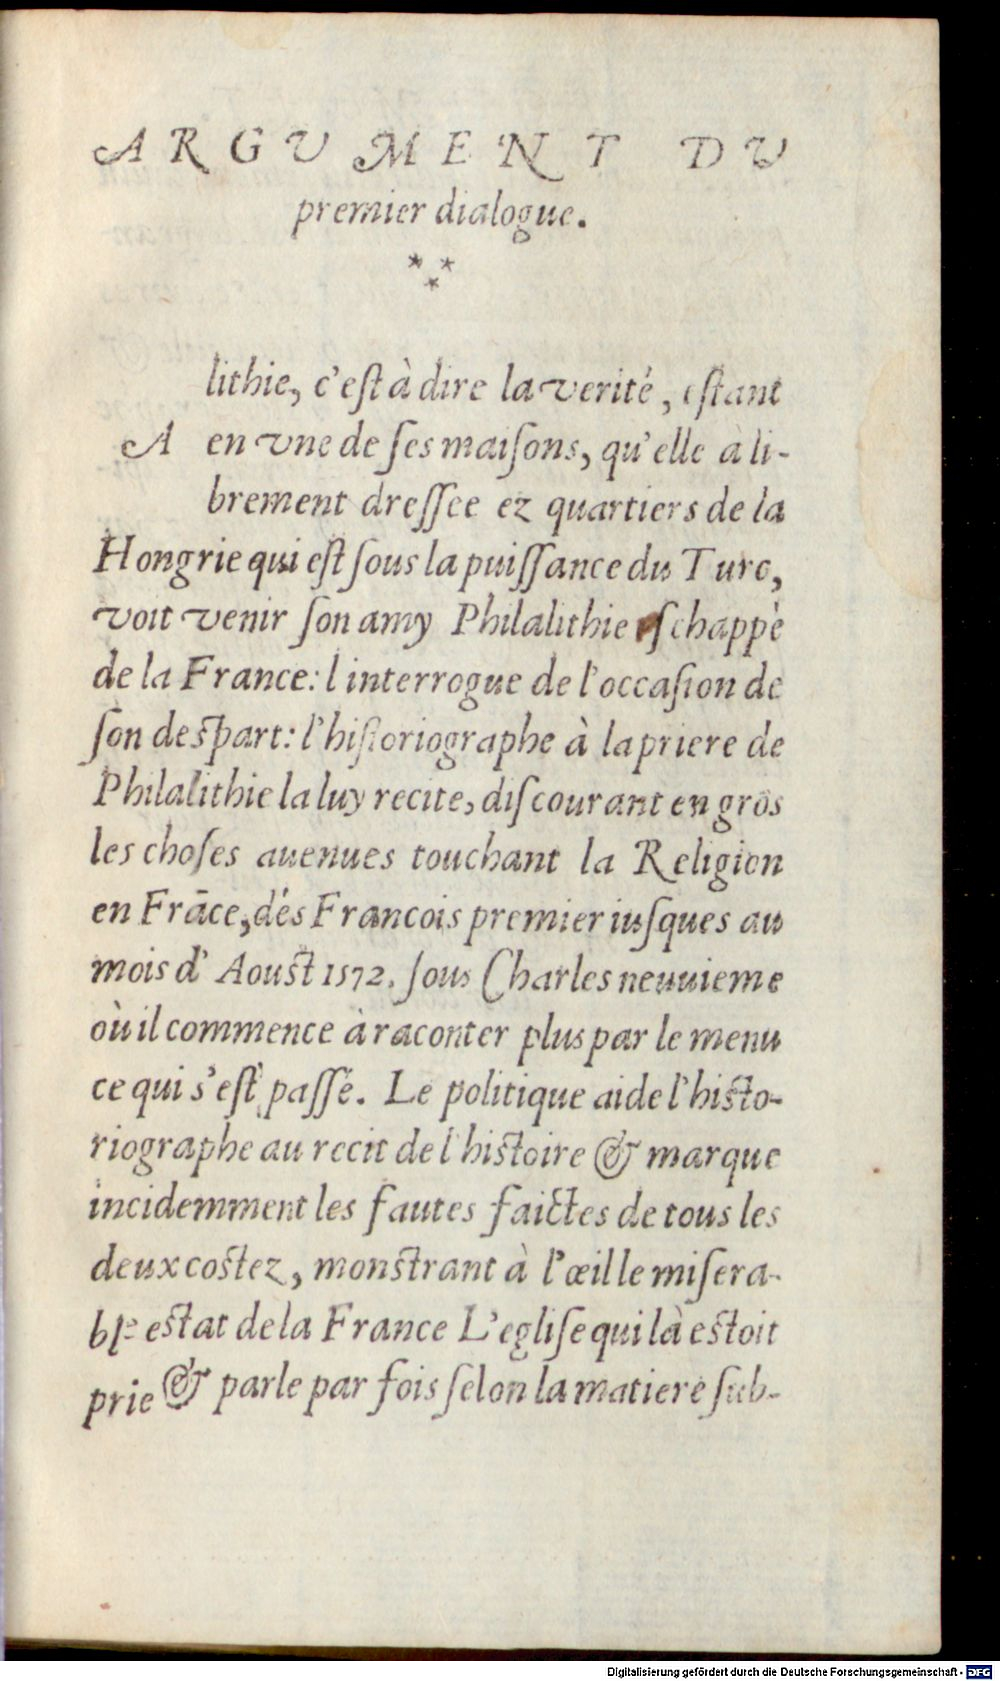 ARGVMENT DV
premier dialogue.
***
lithie, c'eſt à dire la verité, eſtant
A en vne de ſes maiſons, qu'elle a li-
brement dreſſee ez quartiers de la
Hongrie qui eſt ſous la puiſſance du Turc,
voit venir ſon amy Philalithie eſchappé
de la France: l interrogue de l'occaſion de
ſon deſpart: l'hiſtoriographe à la priere de
Philalithie la luy recite, diſcourant en gros
les choſes auenues touchant la Religion
en Frāce, dés Francois premier iuſques au
mois d'Aouſt 1572. ſous Charles neuuieme
où il commence à raconter plus par le menu
ce qui s'eſt paſſé. Le politique aide l'hiſto-
riographe au recit de l'hiſtoire & marque
incidemment les fautes faictes de tous les
deux coſtez, monſtrant à l'œil le miſera-
ble eſtat de la France L'egliſe qui là eſtoit
prie & parle par fois ſelon la matiere ſub-
Digitalisierung gefördert durch die Deutsche Forschungsgemeinschaft - DFG